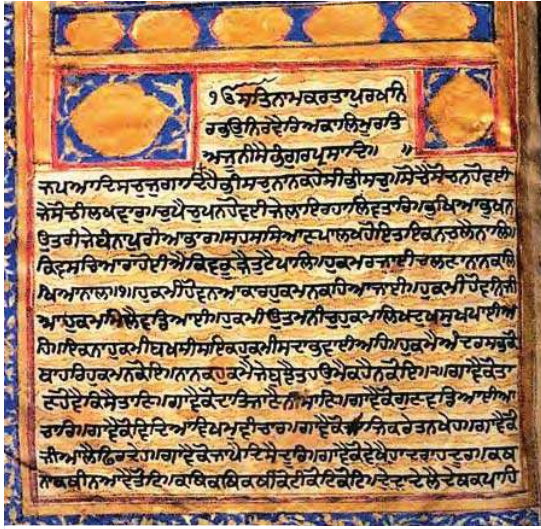 ੴਸਤਿਨਾਮਕਰਤਾਪੁਰਖਨਿ
ਰਭਉਨਿਰਵੈਰਿਅਕਾਲਿਮੂਰਤਿ
ਅਜੂਨੀਸੈਭੰਗੁਰਪ੍ਰਸਾਦਿ॥ ॥
ਜਪਆਦਿਸਚੁਜੁਗਾਦਿਹੈਭੀਸਚੁਨਾਨਕਹੋਸੀਭੀਸਚੁ॥ਸੋਚੈਸੋਚਨਹੋਵਈ
ਜੇਸੋਚੀਲਖਵਾਰ॥ਚੁਪੈਚੁਪਨਹੋਵਈਜੇਲਾਇਰਹਾਲਿਵਤਾਰ॥ਭੁਖਿਆਭੁਖਨ
ਉਤਰੀਜੇਬੰਨਾਪੁਰੀਆਭਾਰ॥ਸਹਸਸਿਆਣਪਾਲਖਹੋਇਤਇਕਨਚਲੈਨਾਲਿ॥
ਕਿਵਸਚਿਆਰਾਹੋਈਐਕਿਵਕੂੜੈਤੁਟੈਪਾਲਿ॥ਹੁਕਮਰਜਾਈਚਲਣਾਨਾਨਕਲਿ
ਖਿਆਨਾਲ॥੧॥ਹੁਕਮੀਹੋਵਨਆਕਾਰਹੁਕਮਨਕਹਿਆਜਾਈ॥ਹੁਕਮੀਹੋਵਨਿਜੀ
ਆਹੁਕਮਿਮਿਲੈਵਡਿਆਈ॥ਹੁਕਮੀਉਤਮਨੀਚੁਹੁਕਮਲਿਖਦੁਖਸੁਖਪਾਈਅ
ਹਿ॥ਇਕਨਾਹੁਕਮੀਬਖਸੀਸਇਕਹੁਕਮੀਸਦਾਭਵਾਈਅਹਿ॥ਹੁਕਮੈਅੰਦਰਸਭਕੋ
ਬਾਹਰਿਹੁਕਮਨਕੋਇ॥ਨਾਨਕਹੁਕਮੈਜੇਬੁਝੈਤਹਉਮੈਕਹੈਨਕੋਇ॥੨॥ਗਾਵੈਕੋਤਾ
ਣਹੋਵੈਕਿਸੈਤਾਣਿ॥ਗਾਵੈਕੋਦਾਤਿਜਾਣੈਨੀਸਾਣਿ॥ਗਾਵੈਕੋਗੁਣਵਡਿਆਈਆ
ਚਾਰ॥ਗਾਵੈਕੋਵਿਦਿਆਵਿਖਮਵੀਚਾਰ॥ਗਾਵੈਕੋਸਾਜਿਕਰੇਤਨਖੇਹ॥ਗਾਵੈਕੋ
ਜੀਆਲੈਫਿਰਦੇਹ॥ਗਾਵੈਕੋਜਾਪੈਦਿਸੈਦੂਰਿ॥ਗਾਵੈਕੋਵੇਖੈਹਾਦਰਾਹਦੂਰ॥ਕਥ
ਨਾਕਥੀਨਆਵੈਤੋਟਿ॥ਕਥਿਕਥਿਕਥੀਕੋਟੀਕੋਟਿਕੋਟਿ॥ਦੇਦਾਦੇਲੈਦੇਥਕਪਾਹਿ